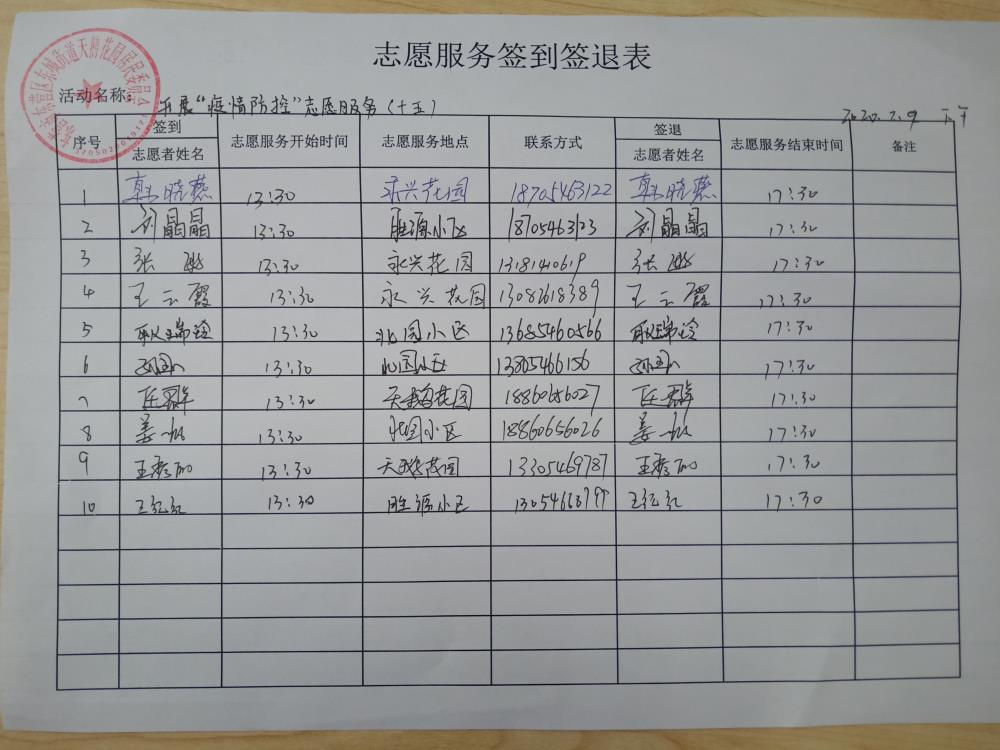 志愿服务签到签退表
活动名称：开展“疫情防控”志愿服务（十五）
2020.2.9 下午
序号 签到 志愿者姓名 志愿服务开始时间 志愿服务地点 联系方式 签退 志愿者姓名 志愿服务结束时间 备注
1 韩晓燕 13:30 永兴花园 18705463122 韩晓燕 17:30
2 刘晶晶 13:30 胜源小区 18705463123 刘晶晶 17:30
3 张 13:30 永兴花园 13181410619 张 17:30
4 王云霞 13:30 永兴花园 13082618389 王云霞 17:30
5 耿瑞玲 13:30 北园小区 13685460566 耿瑞玲 17:30
6 13:30 北园小区 13805466156 17:30
7 任群 13:30 天鹅花园 18860656027 任群 17:30
8 姜 13:30 北园小区 18860656026 姜 17:30
9 王秀丽 13:30 天鹅花园 13305469787 王秀丽 17:30
10 王红红 13:30 胜源小区 王红红 17:30